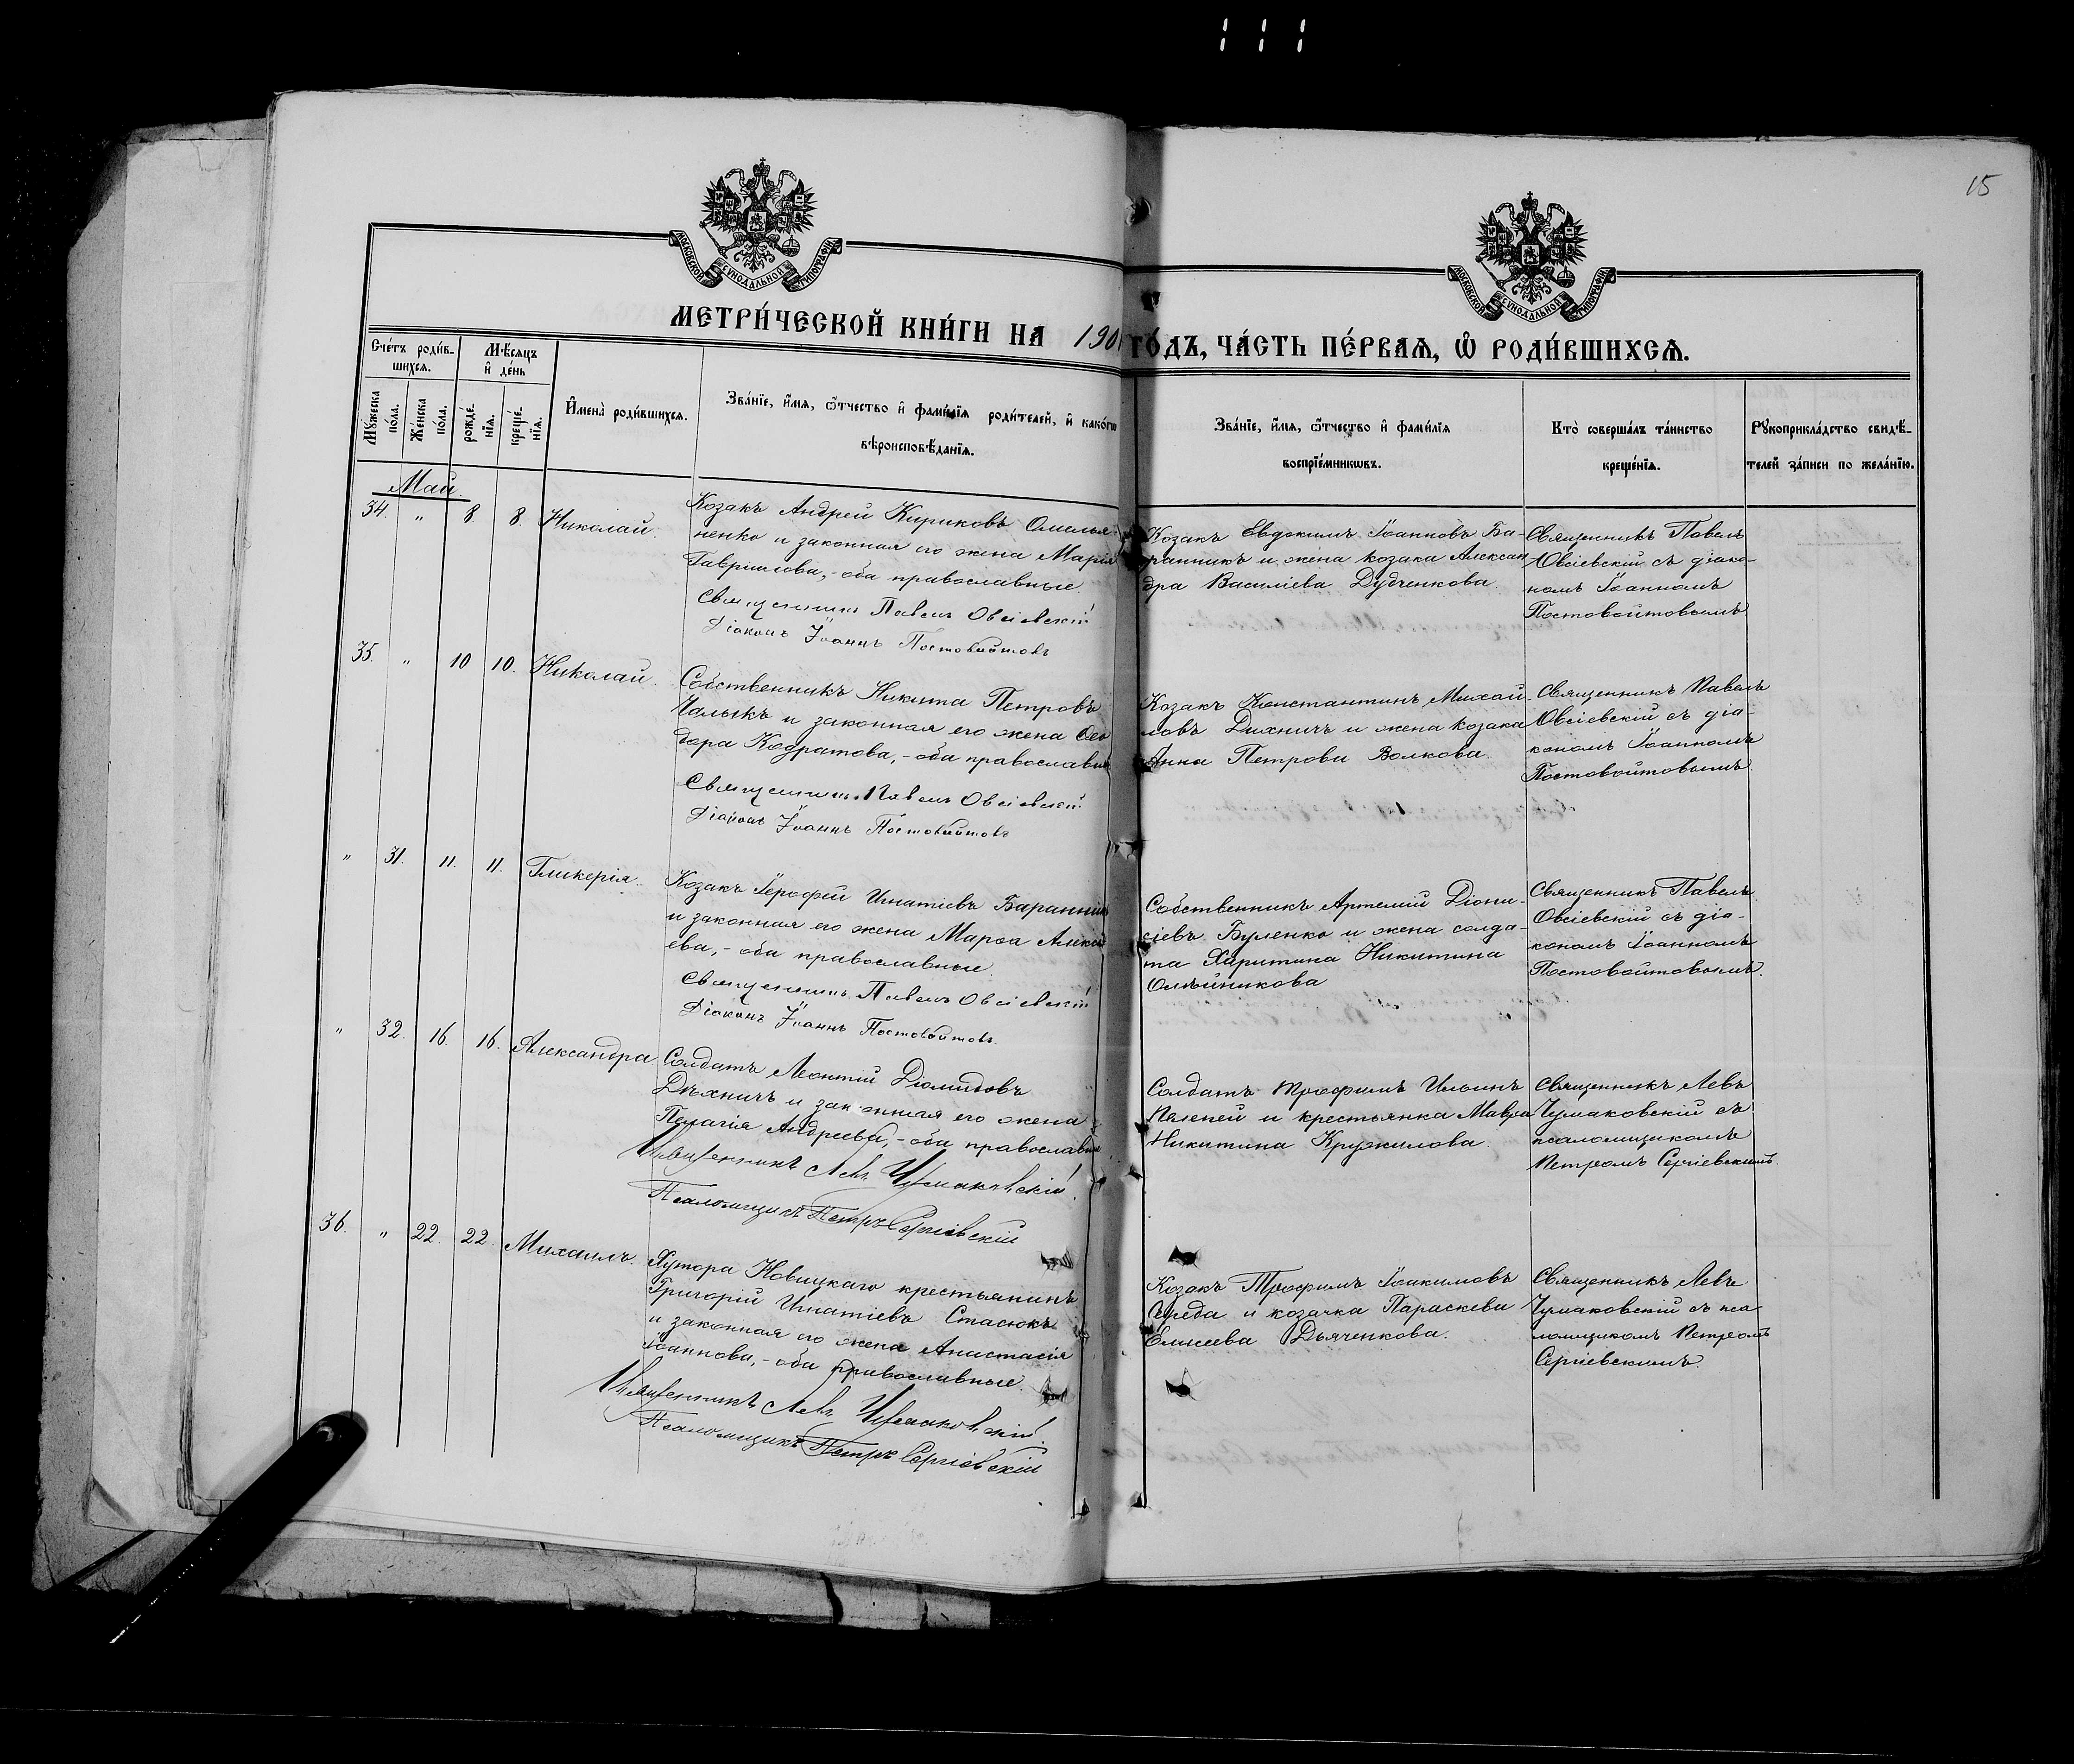 15
МОСКОВСКОЙ СѴНОДАЛЬНОЙ ТИПОГРАФІИ
МОСКОВСКОЙ СѴНОДАЛЬНОЙ ТИПОГРАФІИ
МЕТРИ́ЧЕСКОЙ КНИ́ГИ НА 190 ГО́ДЪ, ЧА́СТЬ ПЕ́РВАѦ, Ѿ РОДИ́ВШИХСѦ.
Сче́тъ роди́в-
шихсѧ.
Мѣ́сяцъ
и҆ де́нь
Мꙋ́жеска
по́ла.
Же́нска
по́ла.
рожде́-
нїѧ.
креще́-
нїѧ.
И҆мена̀ роди́вшихсѧ.
Зва́нїе, и҆́мѧ, ѻ҆́тчество и҆ фами́лїѧ роди́телей, и҆ како́гѡ
вѣроисповѣ́данїѧ.
Зва́нїе, и҆́мѧ, ѻ҆́тчество и҆ фами́лїѧ
воспрїе́мникѡвъ.
Кто̀ соверша́лъ та́инство
креще́нїѧ.
Рꙋкоприкла́дство свидѣ́-
телей за́писи по жела́нїю.
Май.
34. " 8. 8. Николай.
Козакъ Андрей Кириковъ Омелья-
ненко и законная его жена Марія
Гавріилова, - оба православные.
Священникъ Павелъ Овсіевскій
Діаконъ Іоаннъ Постовойтовъ
Козакъ Евдокимъ Іоанновъ Ба-
ранникъ и жена козака Алексан-
дра Василіева Дудченкова.
Священникъ Павелъ
Овсіевскій съ діако-
номъ Іоанномъ
Постовойтовымъ
35. " 10 10. Николай.
Собственникъ Никита Петровъ
Чалыкъ и законная его жена Ѳео
дора Кодратова, - оба православные
Священникъ Павелъ Овсіевскій
Діаконъ Іоаннъ Постовойтовъ
Козакъ Константинъ Михай-
ловъ Дихничъ и жена козака
Анна Петрова Волкова.
Священникъ Павелъ
Овсіевскій съ діа-
кономъ Іоанномъ
Постовойтовымъ.
" 31. 11. 11. Гликерія.
Козакъ Іерофей Игнатіевъ Баранникъ
и законная его жена Марѳа Алексі
ева, - оба православные.
Священникъ Павелъ Овсіевскій
Діаконъ Іоаннъ Постовойтовъ.
Собственникъ Артемій Діони-
сіевъ Буленко и жена солда-
та Харитина Никитина
Олѣйникова
Священникъ Павелъ
Овсіевскій съ діа-
кономъ Іоанномъ
Постовойтовымъ.
" 32. 16. 16. Александра
Солдатъ Леонтій Діомидовъ
Дѣхничъ и законная его жена
Пелагія Андреева, - оба православные
Священникъ Левъ Чумаковскій.
Псаломщикъ Петръ Сергіевскій
Солдатъ Трофимъ Ильинъ
Пелепей и крестьянка Мавра
Никитина Кружилова.
Священникъ Левъ
Чумаковскій съ
псаломщикомъ
Петромъ Сергіевскимъ.
36. " 22. 22. Михаилъ.
Хутора Новицкаго крестьянинъ
Григорій Игнатіевъ Стасюкъ
и законная его жена Анастасія
Іоаннова, - оба православные.
Священникъ Левъ Чумаковскій.
Псаломщикъ Петръ Сергіевскій
Козакъ Трофимъ Іоакимовъ
Середа и козачка Параскева
Елисеева Дьяченкова.
Священникъ Левъ
Чумаковскій съ пса
ломщикомъ Петромъ
Сергіевскимъ.